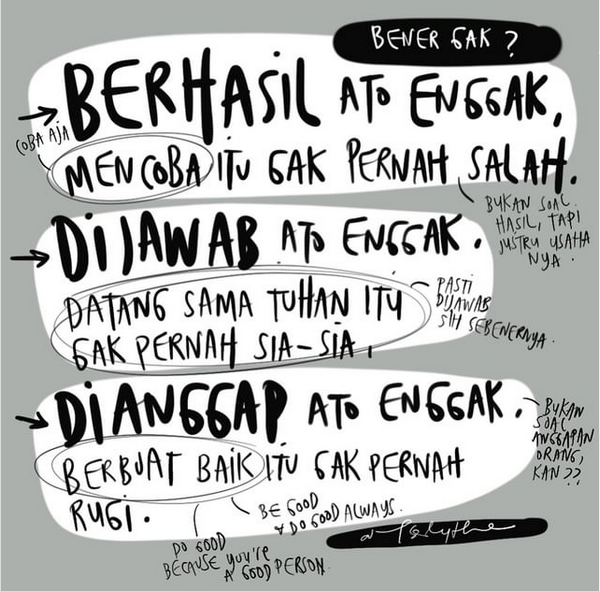 BENER GAK ?
BERHASIL ATO ENGGAK,
COBA AJA
MENCOBA ITU GAK PERNAH SALAH.
BUKAN SOAL
HASIL, TAPI
JUSTRU USAHA
NYA.
DIJAWAB ATO ENGGAK.
DATANG SAMA TUHAN ITU
GAK PERNAH SIA-SIA.
PASTI
DIJAWAB
SIH SEBENERNYA.
DIANGGAP ATO ENGGAK.
BERBUAT BAIK ITU GAK PERNAH
RUGI.
BUKAN
SOAL
ANGGAPAN
ORANG,
KAN??
BE GOOD
& DO GOOD ALWAYS.
DO GOOD
BECAUSE YOU'RE
A GOOD PERSON.